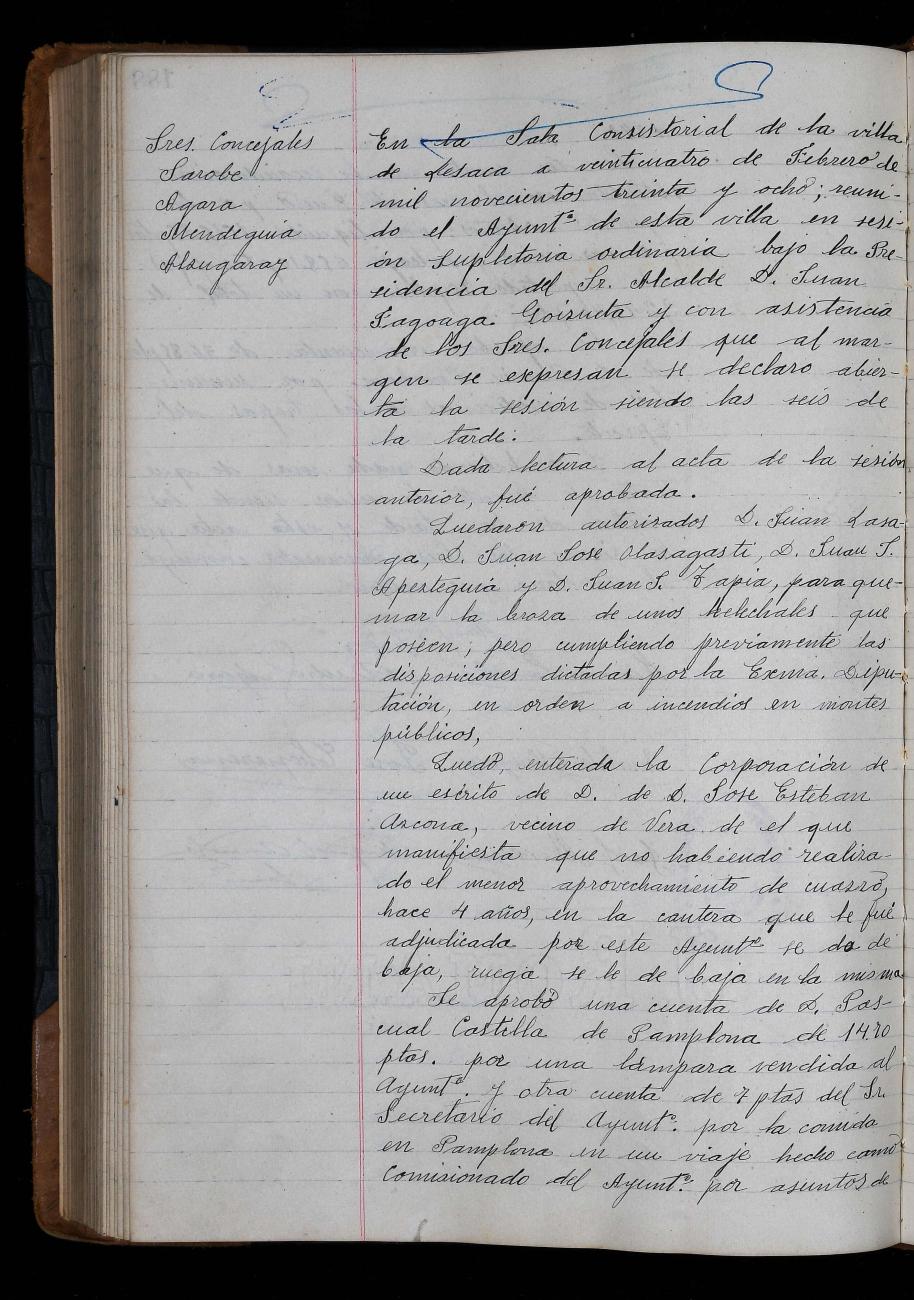 Sres. Concejales
Sarobe
Agara
Mendeguia
Alzugaray
En la Sala Consistorial de la villa
de Lesaca a veinticuatro de Febrero de
mil novecientos treinta y ocho; reuni-
do el Ayuntº de esta villa en sesi-
ón supletoria ordinaria bajo la Pre-
sidencia del Sr. Alcalde D. Juan
Fagoaga Goizueta y con asistencia
de los Sres. Concejales que al mar-
gen se expresan se declaro abier-
ta la sesión siendo las seis de
la tarde.
Dada lectura al acta de la sesión
anterior, fué aprobada.
Quedaron autorizados D. Juan Lasa-
ga, D. Juan José Olasagasti, D. Juan J.
Apesteguia y D. Juan J. Tapia, para que-
mar la broza de unos helechales que
poséen; pero cumpliendo previamente las
disposiciones dictadas por la Exma. Dipu-
tación, en orden a incendios en montes
públicos,
Quedó, enterada la Corporación de
un escrito de D. de D. José Esteban
Azcona, vecino de Vera de el que
manifiesta que no habiendo realiza-
do el menor aprovechamiento de cuarzo,
hace 4 años, en la cantera que le fué
adjudicada por este Ayuntº se da de
baja, ruega se le de baja en la misma
Se aprobó una cuenta de D. Pas-
cual Castilla de Pamplona de 14.70
ptas. por una lámpara vendida al
Ayuntº. y otra cuenta de 7 ptas del Sr.
Secretario del Ayuntº. por la comida
en Pamplona en un viaje hecho como
Comisionado del Ayuntº. por asuntos de